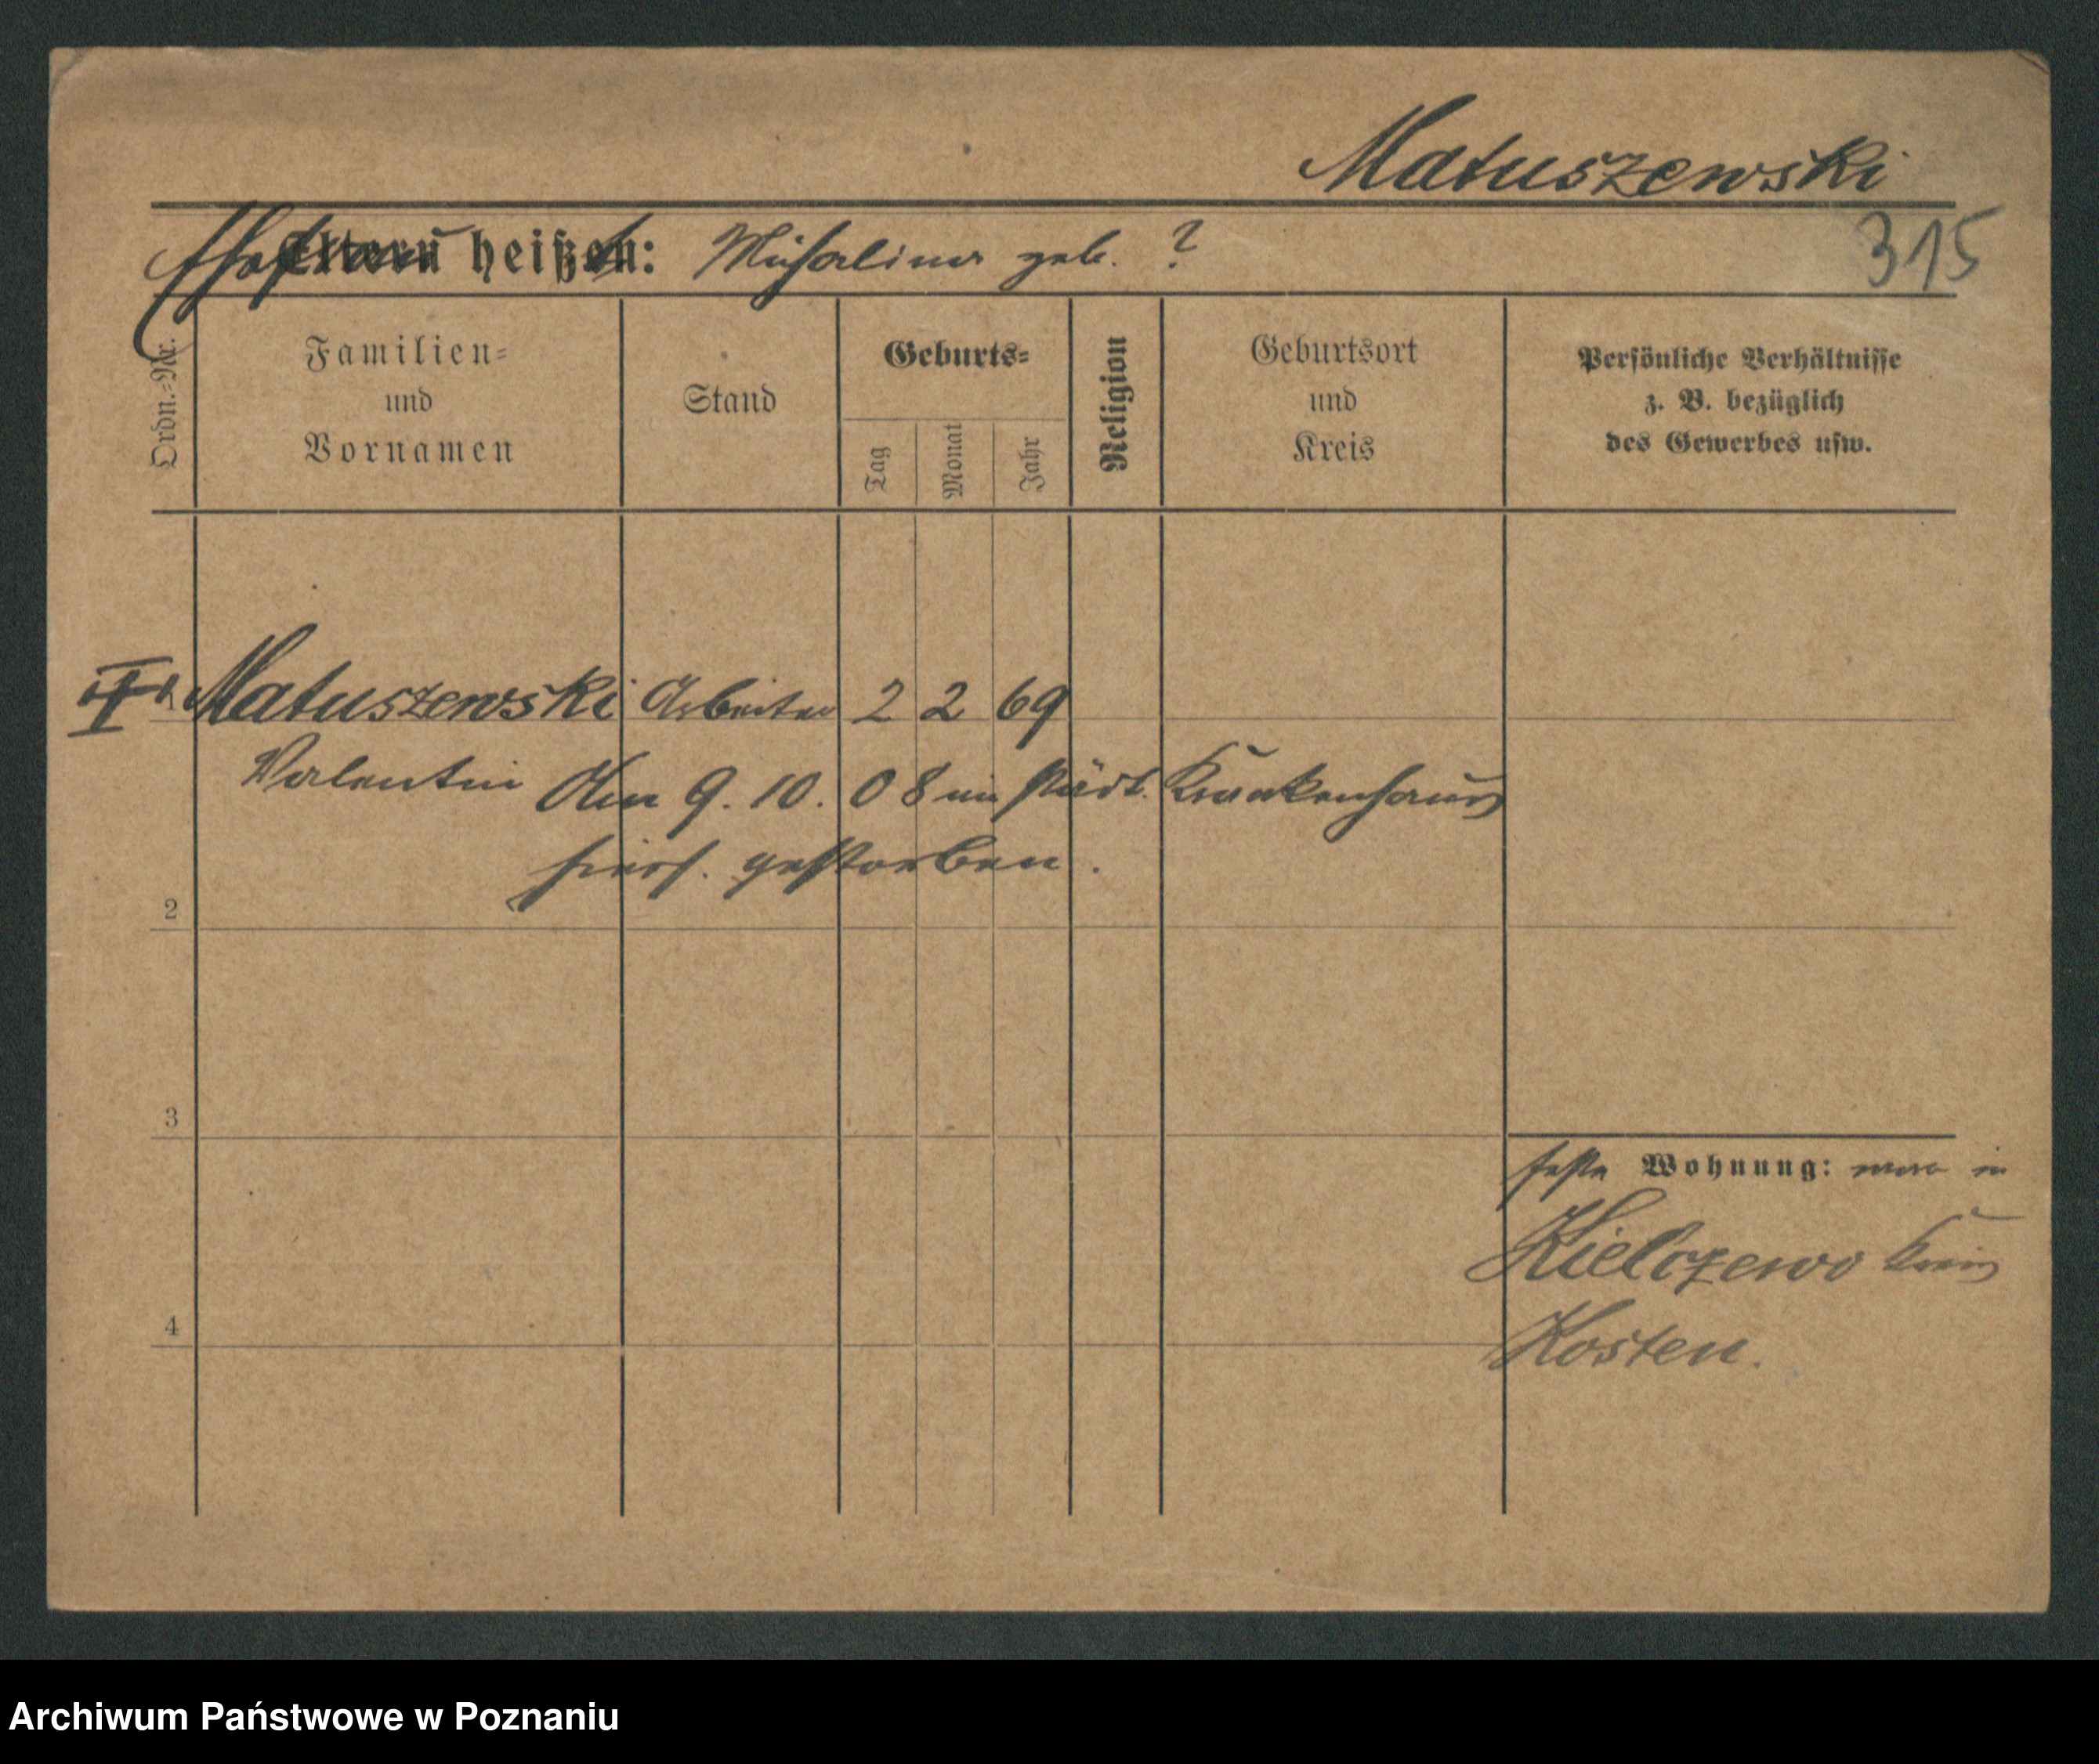 Matuszewski
315
Ehefrau heißt: Michalina geb. ?
Ordn.-Nr.
Familien-
und
Vornamen
Stand
Geburts-
Tag
Monat
Jahr
Religion
Geburtsort
und
Kreis
Persönliche Verhältnisse
z. B. bezüglich
des Gewerbes usw.
1 Matuszewski Arbeiter 2 2 69
Valentin
Am 9. 10. 08 im städt. Krankenhaus
hiers. gestorben.
2
3
4
feste Wohnung: war in
Kielczewo Kreis
Kosten.
Archiwum Państwowe w Poznaniu